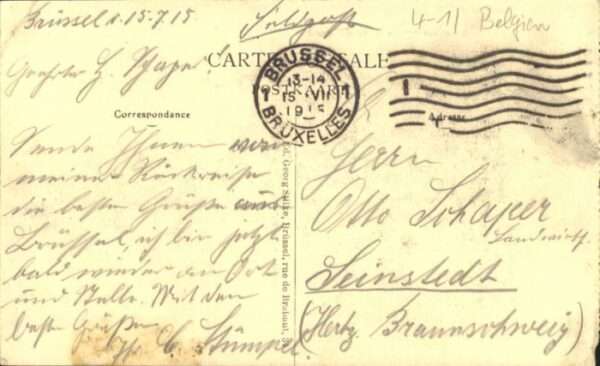 Brüssel d. 15.7.15
Feldpost
4-1/ Belgien
CARTE POSTALE
POSTKAART
BRUSSEL
13-14
1 15 VII 1
1915
BRUXELLES
1
Geehrter H. Schaper!
Correspondance
Adresse
Sende Ihnen von
meiner Rückreise
die besten Grüße aus
Brüssel, ich bin jetzt
bald wieder an Ort
und Stelle. Mit den
besten Grüßen
Ihr C. Stümpel
Ed. Georg Stilke, Brüssel, rue de Brabant,
Herrn
Otto Schaper
Landwirt
Seinstedt
(Herz. Braunschweig)